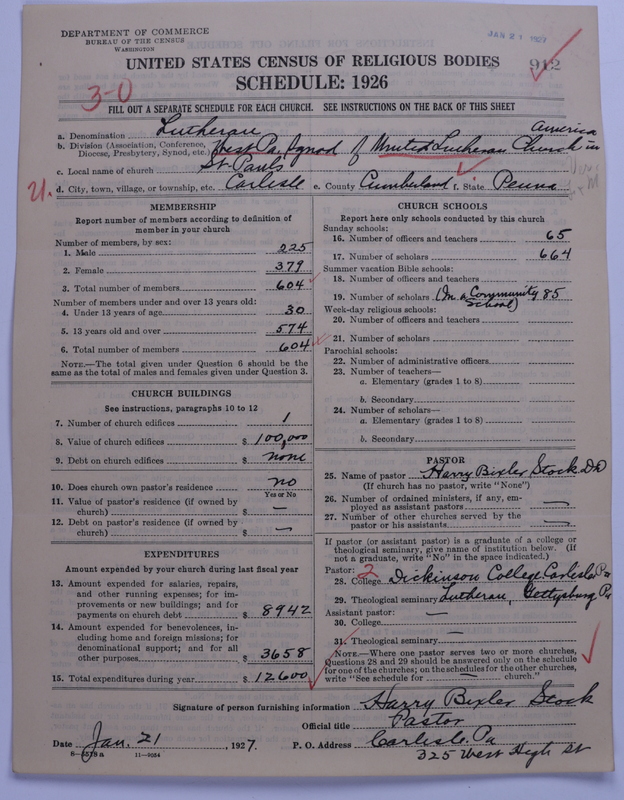 DEPARTMENT OF COMMERCE
BUREAU OF THE CENSUS
WASHINGTON
JAN 21 1927
912
UNITED STATES CENSUS OF RELIGIOUS BODIES
SCHEDULE: 1926
3-0
FILL OUT A SEPARATE SCHEDULE FOR EACH CHURCH. SEE INSTRUCTIONS ON THE BACK OF THIS SHEET
a. Denomination Lutheran
b. Division (Association, Conference, Diocese, Presbytery, Synod, etc.) West Pa. Synod of United Lutheran Church in America
c. Local name of church St. Pauls
d. City, town, village, or township, etc. Carlisle e. County Cumberland f. State Penna
MEMBERSHIP
Report number of members according to definition of
member in your church
Number of members, by sex:
1. Male 225
2. Female 379
3. Total number of members 604
Number of members under and over 13 years old:
4. Under 13 years of age 30
5. 13 years old and over 574
6. Total number of members 604
NOTE.—The total given under Question 6 should be
same as the total of males and females given under Question 3.
CHURCH BUILDINGS
See instructions, paragraphs 10 to 12
7. Number of church edifices 1
8. Value of church edifices $ 100,000
9. Debt on church edifices $ none
10. Does church own pastor's residence no
Yes or No
11. Value of pastor's residence (if owned by
church) $ —
12. Debt on pastor's residence (if owned by
church) $ —
EXPENDITURES
Amount expended by your church during last fiscal year
13. Amount expended for salaries, repairs,
and other running expenses; for im-
provements or new buildings; and for
payments on church debt $ 8942
14. Amount expended for benevolences, in-
cluding home and foreign missions; for
denominational support; and for all
other purposes $ 3658
15. Total expenditures during year $ 12600
CHURCH SCHOOLS
Report here only schools conducted by this church
Sunday schools:
16. Number of officers and teachers 65
17. Number of scholars 664
Summer vacation Bible schools:
18. Number of officers and teachers
19. Number of scholars (In a Community School) 85
Week-day religious schools:
20. Number of officers and teachers
21. Number of scholars
Parochial schools:
22. Number of administrative officers
23. Number of teachers—
a. Elementary (grades 1 to 8)
b. Secondary
24. Number of scholars—
a. Elementary (grades 1 to 8)
b. Secondary
PASTOR
25. Name of pastor Harry Bixler Stock D.D
(If church has no pastor, write "None")
26. Number of ordained ministers, if any, em-
ployed as assistant pastors —
27. Number of other churches served by the
pastor or his assistants —
If pastor (or assistant pastor) is a graduate of a college or
theological seminary, give name of institution below. (If
not a graduate, write "No" in the space indicated.)
Pastor: 2
28. College Dickinson College Carlisle Pa
29. Theological seminary Lutheran, Gettysburg Pa
Assistant pastor: —
30. College
31. Theological seminary —
NOTE.—Where one pastor serves two or more churches,
Questions 28 and 29 should be answered only on the schedule
for one of the churches; on the schedules for the other churches,
write "See schedule for — church."
Signature of person furnishing information Harry Bixler Stock
Official title Pastor
Date Jan. 21, 1927. P. O. Address Carlisle. Pa
325 West High St
11—9054